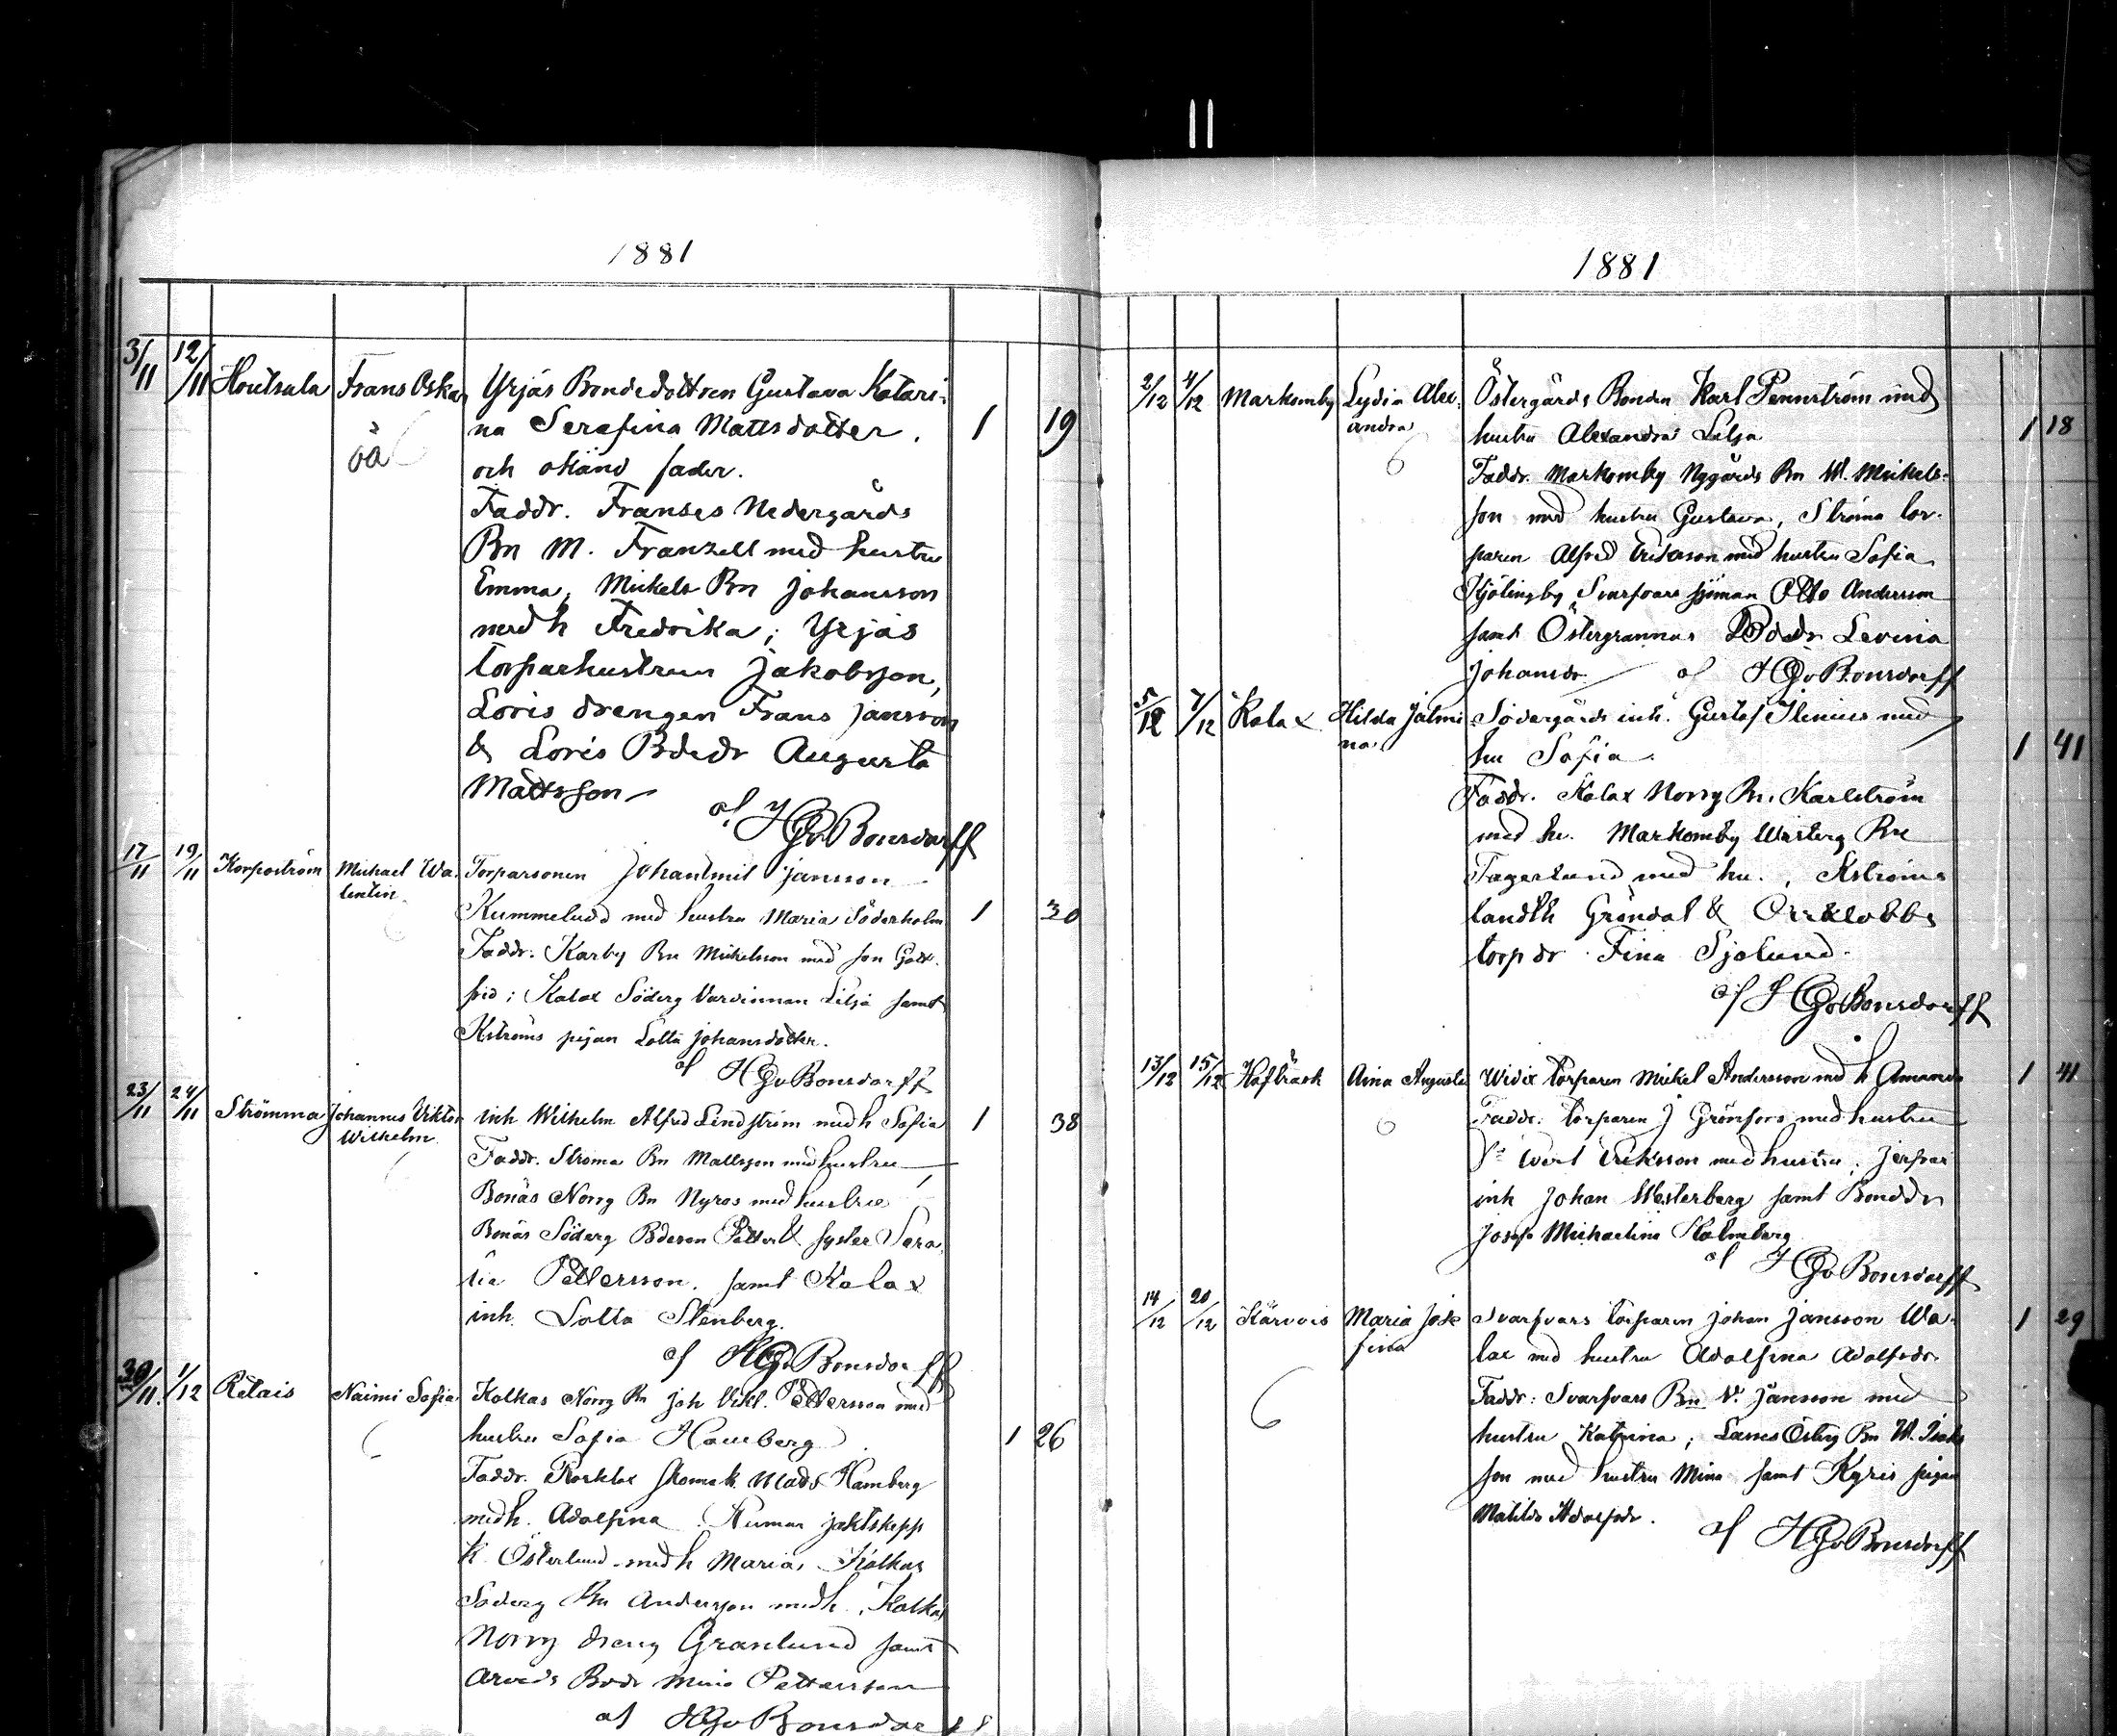 1881
3/11 12/11 Houtsala Frans Oskar Yrjäs Bondedottren Gustava Katari-
oä na Serafina Mattsdotter. 1 19
och okänd fader.
Faddr. Franses Nedergårds
Bn M. Franzell med hustru
Emma, Mickels Bn Johansson
med h Fredrika; Yrjäs
torparhustrun Jakobsson,
Loris drengen Frans Jansson
& Loris Bdedr Augusta
Mattsson
af H G v Bonsdorff
17/11 19/11 Korpoström Michael Wa- Torparsonen Johan Emil Jansson
lentin Kummeludd med hustru Maria Söderholm 1 30
Faddr. Karby Bn Mickelsson med son Gott-
frid; Kalax Söderg Värdinnan Lilja samt
Kströms pigan Lotta Johansdotter.
af H G v Bonsdorff
23/11 24/11 Strömma Johannes Viktor inh Wilhelm Alfred Lindström med h Sofia 1 38
Wilhelm Faddr. Ströma Bn Mattsson med hustru
Bonäs Norrg Bn Nyros med hustru
Bonäs Söderg Bdeson Petter & syster Sera
fia Pettersson, samt Kalax
inh. Lotta Stenberg.
af H G v Bonsdorff
30/11 1/12 Retais Naimi Sofia Kalkas Norrg Bn Joh Vikt. Pettersson med
hustru Sofia Hamberg 1 26
Faddr. Rosklax skomak. Mads Hamberg
med h. Adolfina
K. Österlund med h Maria, Kalkas
Söderg Bn Andersson med h., Kalkas
Norrg dreng Granlund samt
Arvids Bddr Mina Pettersson
af H G v Bonsdorff
1881
2/12 4/12 Markomby Lydia Alex- Östergårds Bonden Karl Pennström med
andra hustru Alexandra Lilja 1 18
Faddr. Markomby Nygårds Bn W. Mickels-
son med hustru Gustava, Ströma tor-
paren Alfred Eriksson med hustru Sofia
Sjöman Otto Andersson
samt Östergrannas Bdedr Levina
Johansdr af H G v Bonsdorff
5/12 7/12 Kalax Hilda Jalmi Södergårds inh. Gustaf Ilenius med
na hu Sofia. 1 41
Faddr. Kalax Norrg Bn. Karlström
med hu. Markomby Westerg Bn
Fagerlund med hu., Kströms
landth Gröndal & Orrklobbs
torpdr Fina Sjölund.
af H G v Bonsdorff
13/12 15/12 Hafträsk Aina Augusta Widix torparen Mickel Andersson med h Amanda 1 41
Faddr: torparen J Grönfors med hustru
Eriksson med hustru,
inh Johan Westerberg samt Bonddr
Josef Michaelina Holmberg
af H G v Bonsdorff
14/12 20/12 Kärvois Maria Jose Svarfvars torparen Johan Jansson Wa- 1 29
fina lax med hustru Adolfina Adolfsdr.
Faddr: Svarfvars Bn V. Jansson med
hustru Katrina; Österg Bn W. Isaks
son med hustru Mina samt Kyris pigan
Matilda Adolfsdr.
af H G v Bonsdorff